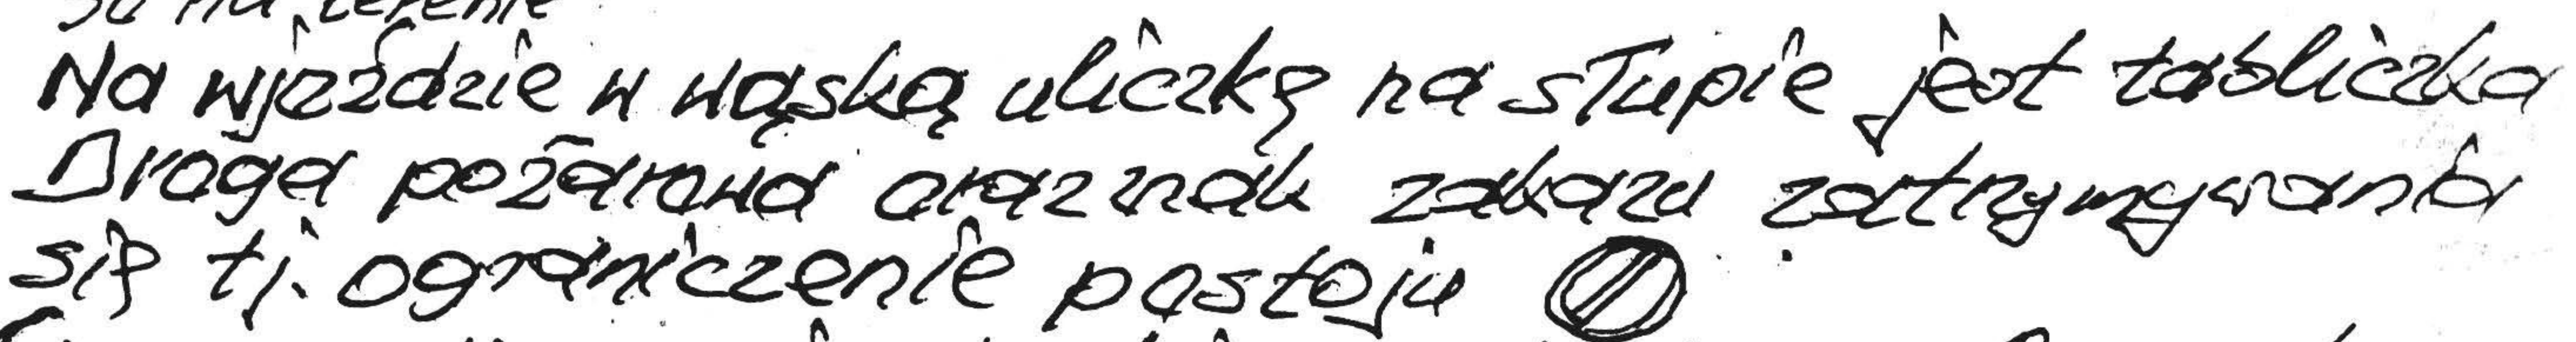 Na wjeździe w wąską uliczkę na słupie jest tabliczka
Droga pożarowa oraz znak zakazu zatrzymywania
się tj. ograniczenie postoju